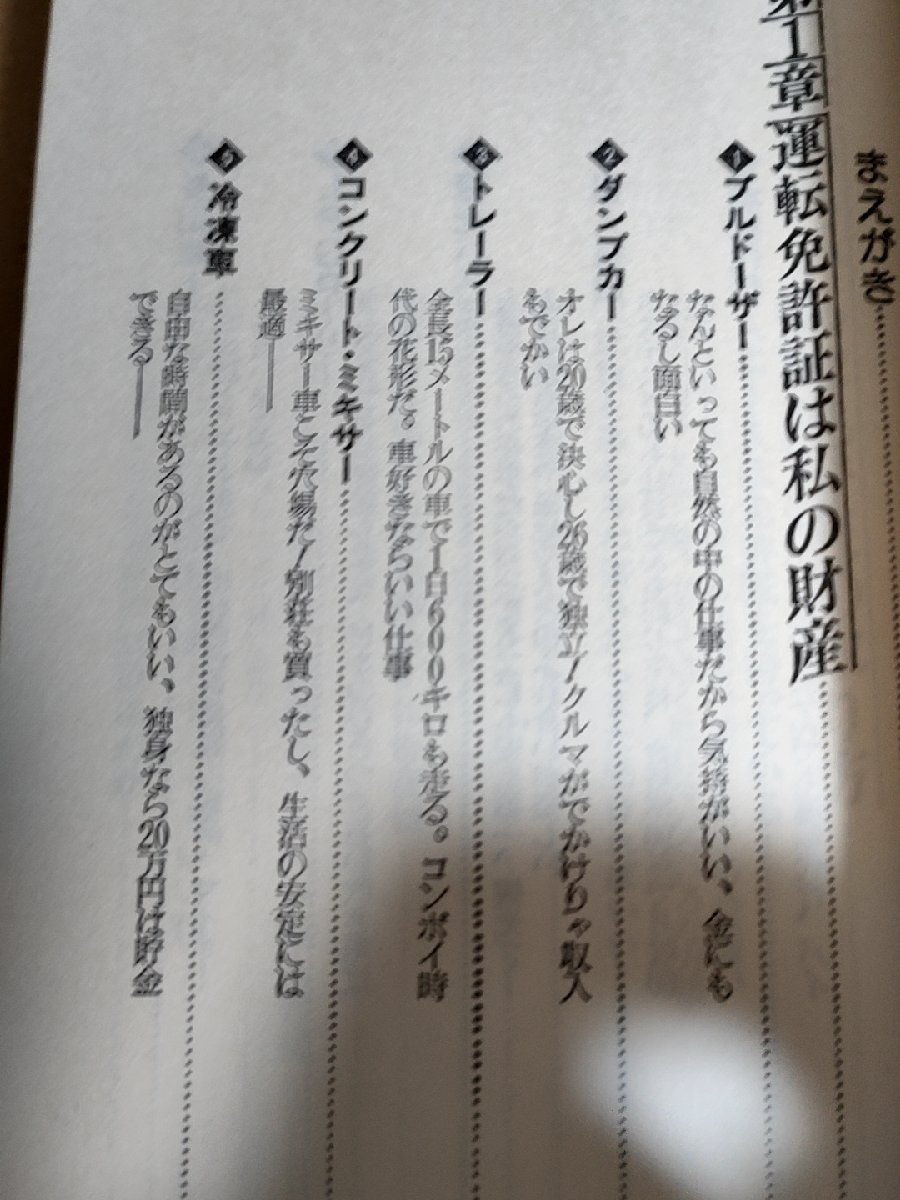 まえがき
第1章 運転免許証は私の財産
❶ ブルドーザー
なんといっても自然の中の仕事だから気持がいい、金にも
なるし面白い
❷ ダンプカー
オレは20歳で決心し26歳で独立！クルマがでかけりゃ収入
もでかい
❸ トレーラー
全長15メートルの車で1日600キロも走る。コンボイ時
代の花形だ。車好きならいい仕事
❹ コンクリート・ミキサー
ミキサー車こそ穴場だ！別荘も買ったし、生活の安定には
最適――
❺ 冷凍車
自由な時間があるのがとてもいい、独身なら20万円は貯金
できる――